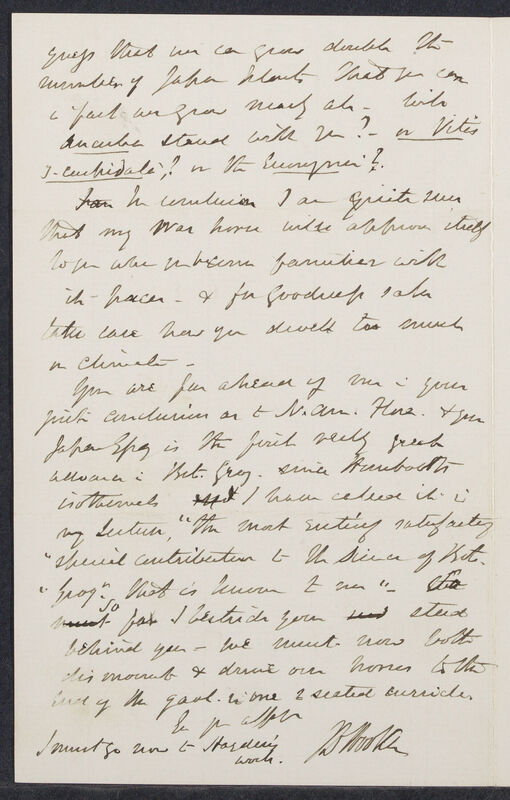 guess that we can grow double the
number of Japan plants that you can
& fact we grow nearly all — will
aucuba stand with you? — or Vitis
3-cuspidata? or the Euonymi?.
In conclusion I am quite sure
that my War horse will approve itself
to you when you become familiar with
its paces — & for goodness sake
take care how you dwell too much
on climate —
You are far ahead of me in your
just conclusions as to N. Am. Flora. & your
Japan Essay is the first really great
advance in Bot. Geog. since Humboldts
isothermals I have called it in
my Lecture, "the most entirely satisfactory
"special contribution to the Science of Bot.
"Geog". that is known to me" —
so far I bestride your steed
behind you — we must now both
dismount & drive our horses to the
end of the goal in one 2 seated curricle.
Ev yr affec
I must go now to Harvey's
work. JD Hooker